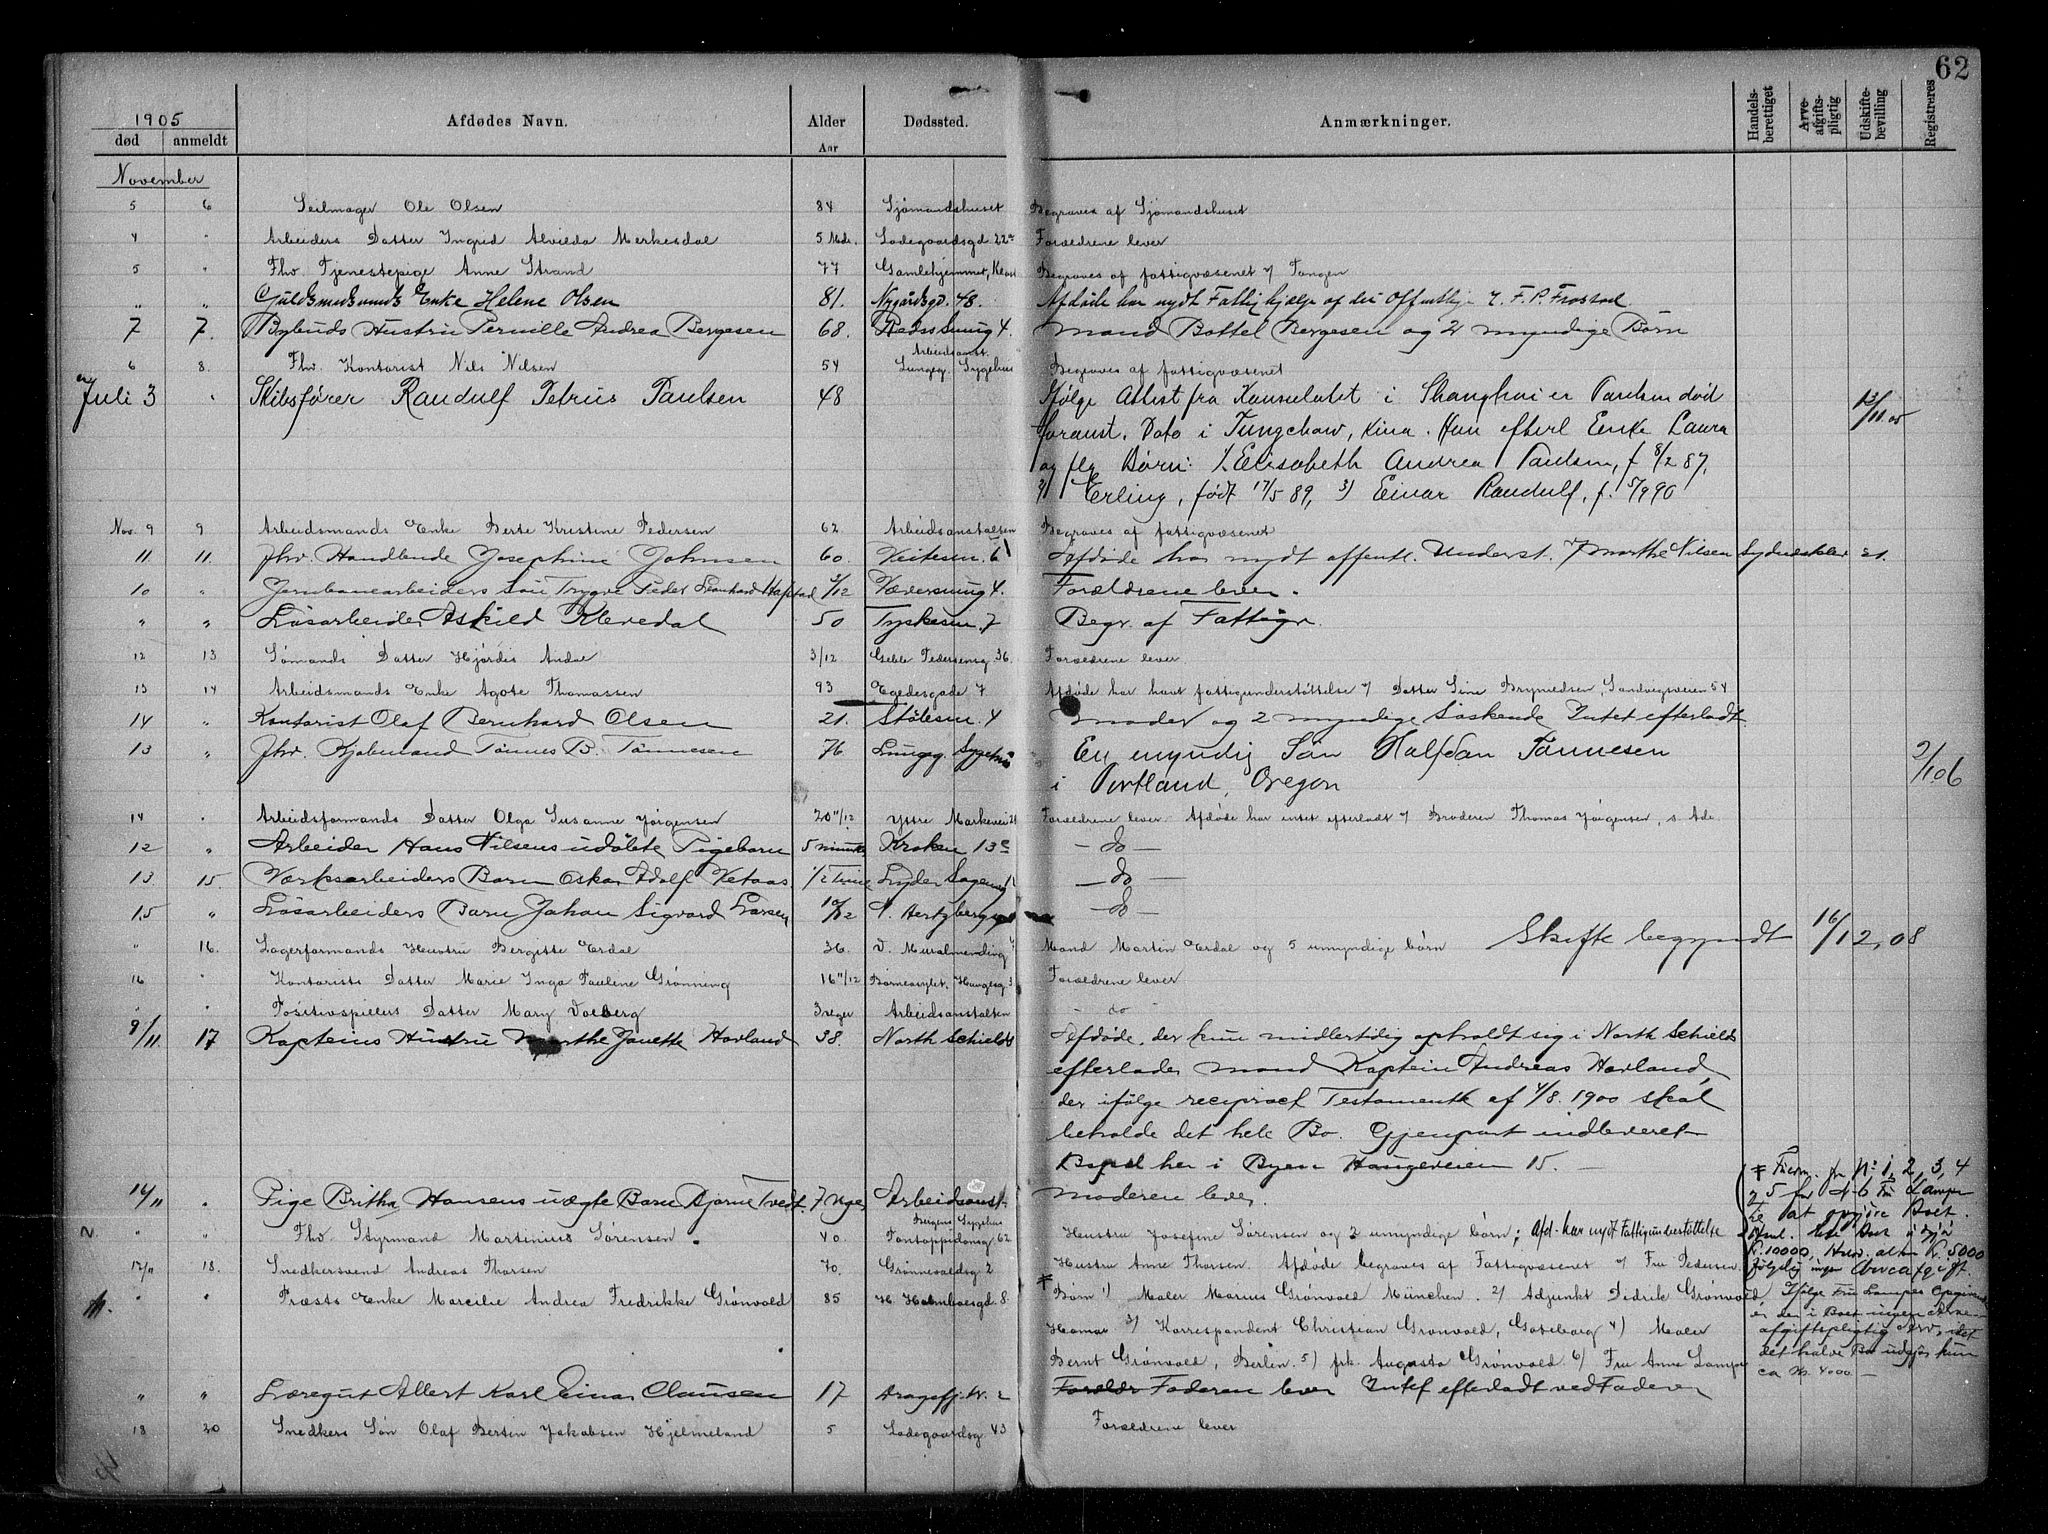 62
1905
død anmeldt Afdødes Navn. Alder Aar Dødssted. Anmærkninger. Handels-berettiget Arve-afgifts-pligtig Udskifte-bevilling Registreres
November
5 6 Seilmager Ole Olsen 84 Sjömandshuset Begraves af Sjömandshuset
4 " Arbeiders Datter Ingrid Alvilda Merkesdal 5 Mdr. Ladegaardsgd 22a Forældrene lever
5 " Fhv. Tjenestepige Anne Strand 77 Gamlehjemmet, Begraves af fattigvæsenet v/ Tangen
" " Guldsmedsvends Enke Helene Olsen 81. Nygårdsgd. 48. Afdöde har nydt Fattighjælp af det Offentlige v. F. P. Frostad
7 7. Bybuds Hustru Pernille Andrea Bergesen 68. 4. Mand Bottel Bergesen og 2 myndige Börn
6 8. Fhv. Kontorist Nils Nilsen 54 Arbeidsanst. Lungeg. Sygehus Begraves af fattigvæsenet
Juli 3 " Skibsfører Randulf Petrus Paulsen 48 Ifølge Attest fra Konsulatet i Shanghai er Paulsen död 13/11.05
foranst. Dato i Tungchow, Kina. Han efterl Enke Laura
og flg Börn: 1/ Elisabeth Andrea Paulsen, f 8/2 87,
2/ Erling, født 17/5 89, 3) Einar Randulf, f. 5/9 90
Nov. 9 9 Arbeidsmands Enke Berte Kristine Pedersen 62 Arbeidsanstalten Begraves af fattigvæsenet
11 11. Fhv. Handlende Josephine Johnsen 60. Veitesm. 6 Afdøde har nydt offentl. Underst. v/ Marthe Nilsen Sydneskler 21.
10 " Jernbanearbeiders Sön Trygve Peder Leonhard Hopstad 3/12 Væversmug 4. Forældrene lever.
" " Lösarbeider Askild Klevedal 50 Tyskesm. 7 Begr. af Fattigv.
12 13 Sömands Datter Hjördis Andal 3/12 Geble Pedersensg. 36. Forældrene lever
13 14 Arbeidsmands Enke Agote Thomassen 93 Egedesgade 7 Afdöde har havt fattigunderstöttelse v/ Datter Sine Brynildsen, Sandvigsveien 54
14 " Kontorist Olaf Bernhard Olsen 21. Stölesm. 4 Moder og 2 myndige Söskende Intet efterladt.
13 " Fhv. Kjøbmand Tönnes B. Tönnesen 76 Lungeg. Sygehus En myndig Sön Halfdan Tönnesen
i Portland, Oregon 2/1 06
14 " Arbeidsformands Datter Olga Susanne Jörgensen 20 11/12 Ytre Markevei 21 Forældrene lever. Afdöde har intet efterladt v/ Broderen Thomas Jörgensen, s. Ade.
12 " Arbeider Hans Nilsens udöbte Pigebarn 5 minutter Kroken 13c – do –
13 15. Værksarbeiders Barn Oskar Adolf Vetaas 1/2 Time Lyder Sagensg – do –
15 " Lösarbeiders Barn Johan Sigvard Larsen 10/12 Hertzbergsg – do –
" 16. Lagerformands Hustru Bergitte Erdal 36. V. Muralmending Mand Martin Erdal og 5 umyndige börn Skifte begyndt 16/12.08
16 " Kontorists Datter Marie Inga Pauline Grönning 16 11/12 Börneasylet, Haugesg. 3 Forældrene lever
" " Positivspillers Datter Mary Dalberg 3 uger Arbeidsanstalten – do –
9/11 17 Kapteins Hustru Marthe Janette Havland 38. North Schields Afdöde, der kun midlertidig opholdt sig i North Schields
efterlader mand Kaptein Andreas Havland,
der ifölge reciproct Testamente af 4/8 1900 skal
beholde det hele Bo. Gjenpart indleveret
Bopæl her i Byen Haugeveien 15. –
16/11 " Pige Britha Hansens uægte Barn Bjarne Tvedt. 7 Uger Arbeidsanst. moderen lever.
" " Fhv. Styrmand Martinius Sörensen. 40. Bergens Sygehus Pontoppidansg 62 Hustru Josefine Sörensen og 2 umyndige börn; Afd. har nydt Fattigunderstöttelse
17/11 18. Snedkersvend Andreas Thorsen 70. Grönnevoldsg 2 Hustru Anne Thorsen. Afdöde begraves af Fattigvæsenet v/ Fru Pedersen
" " Præsts Enke Marcilie Andrea Fredrikke Grönvold 85 H. Holmboesgd 8. Börn 1) Maler Marius Grönvold München. 2) Adjunkt Didrik Grönvold
Hamar 3) Korrespondent Christian Grönvold, Göteborg 4) Maler
Bernt Grönvold, Berlin. 5) frk. Augusta Grönvold 6) Fru Anna Lampe
Fuldm. fra No 1, 2, 3, 4
2 5 for No 6 Fru Lampe
til at opgjöre Boet.
Kr. 10000, Kr. 5000
fölgelig ingen Arveafgift.
Ifölge Fru Lampes Opgivende
er der i Boet ingen Arve-
afgiftspligtig Arv, idet
det halve Bo udgjör kun
ca Kr. 4000 –
" " Læregut Albert Karl Einar Clausen 17 2 Forældr Faderen lever Intet efterladt ved Faderen
18 20 Snedkers Sön Olaf Bertin Jakobsen Hjelmeland 5 Ladegaardsg 43 Forældrene lever